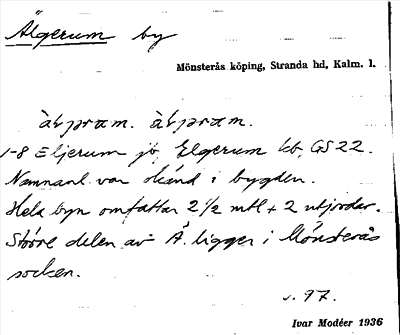 Älgerum by
Mönsterås köping, Stranda hd, Kalm. l.
1-8 Eljerum jo, Elgerum kb, GS 22.
Namnanl. var okänd i bygden.
Hela byn omfattar 2 1/2 mtl + 2 utjordar.
Större delen av Ä. ligger i Mönsterås
socken.
s. 97.
Ivar Modéer 1936